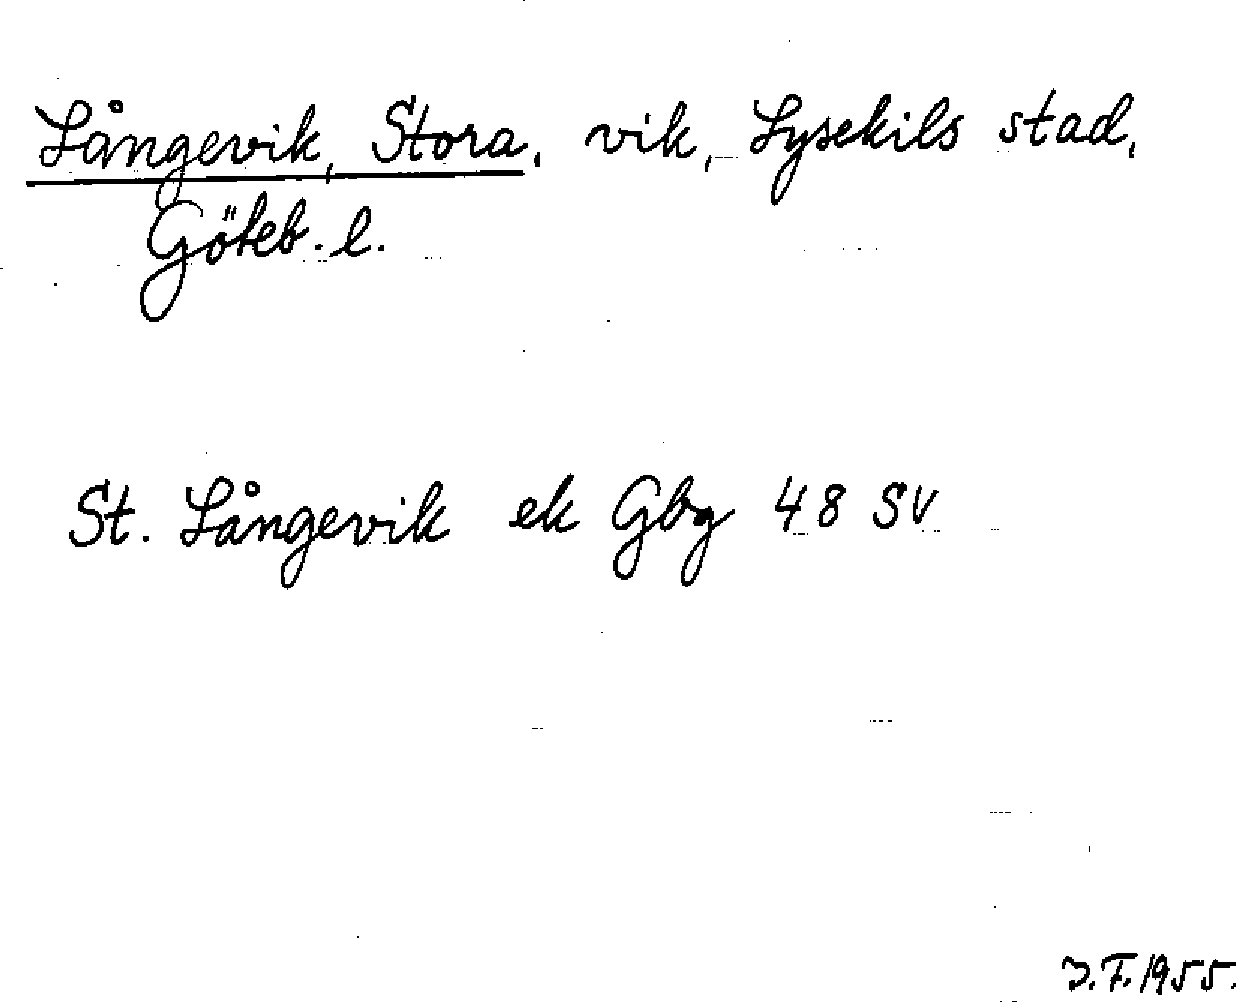 Långevik, Stora, vik, Lysekils stad,
Göteb. l.
St. Långevik ek Gbg 48 SV
J.F. 1955.